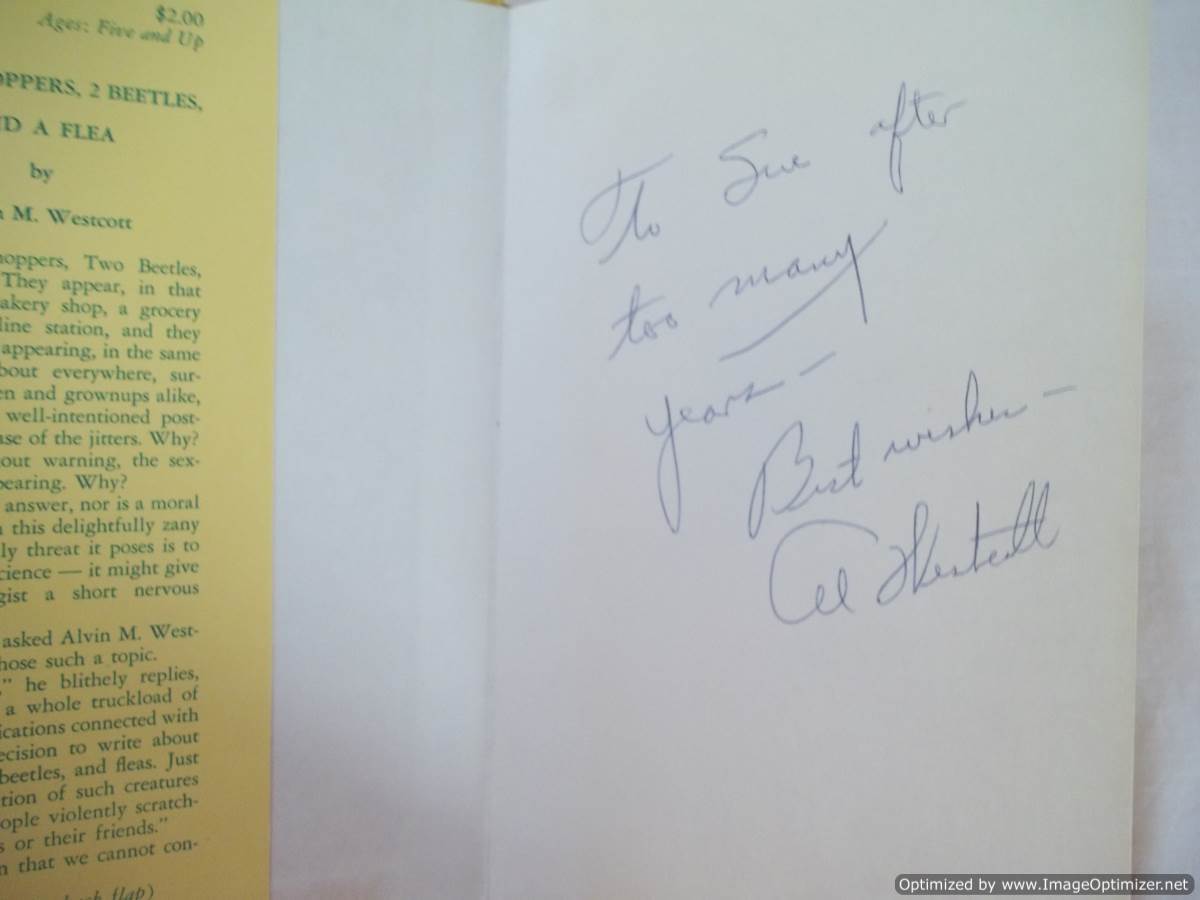 $2.00
Ages: Five and Up
OPPERS, 2 BEETLES,
D A FLEA
by
M. Westcott
oppers, Two Beetles,
They appear, in that
akery shop, a grocery
line station, and they
appearing, in the same
bout everywhere, sur-
en and grownups alike,
well-intentioned post-
ase of the jitters. Why?
out warning, the sex-
pearing. Why?
answer, nor is a moral
this delightfully zany
ly threat it poses is to
cience — it might give
gist a short nervous
asked Alvin M. West-
hose such a topic.
" he blithely replies,
a whole truckload of
ications connected with
ecision to write about
beetles, and fleas. Just
tion of such creatures
ople violently scratch-
s or their friends."
n that we cannot con-
flap)
To Sue after
too many
years —
Best wishes —
Al Westcott
Optimized by www.ImageOptimizer.net